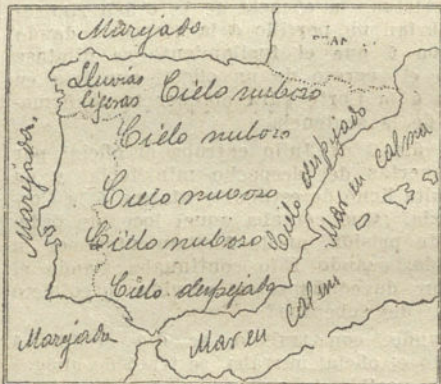 Marejada
FRAN
Lluvias
ligeras
Cielo nuboso
Cielo nuboso
Cielo nuboso
Cielo nuboso
Cielo despejado
Cielo despejado
Marejada.
Mar en calma
Marejada
Mar en calma